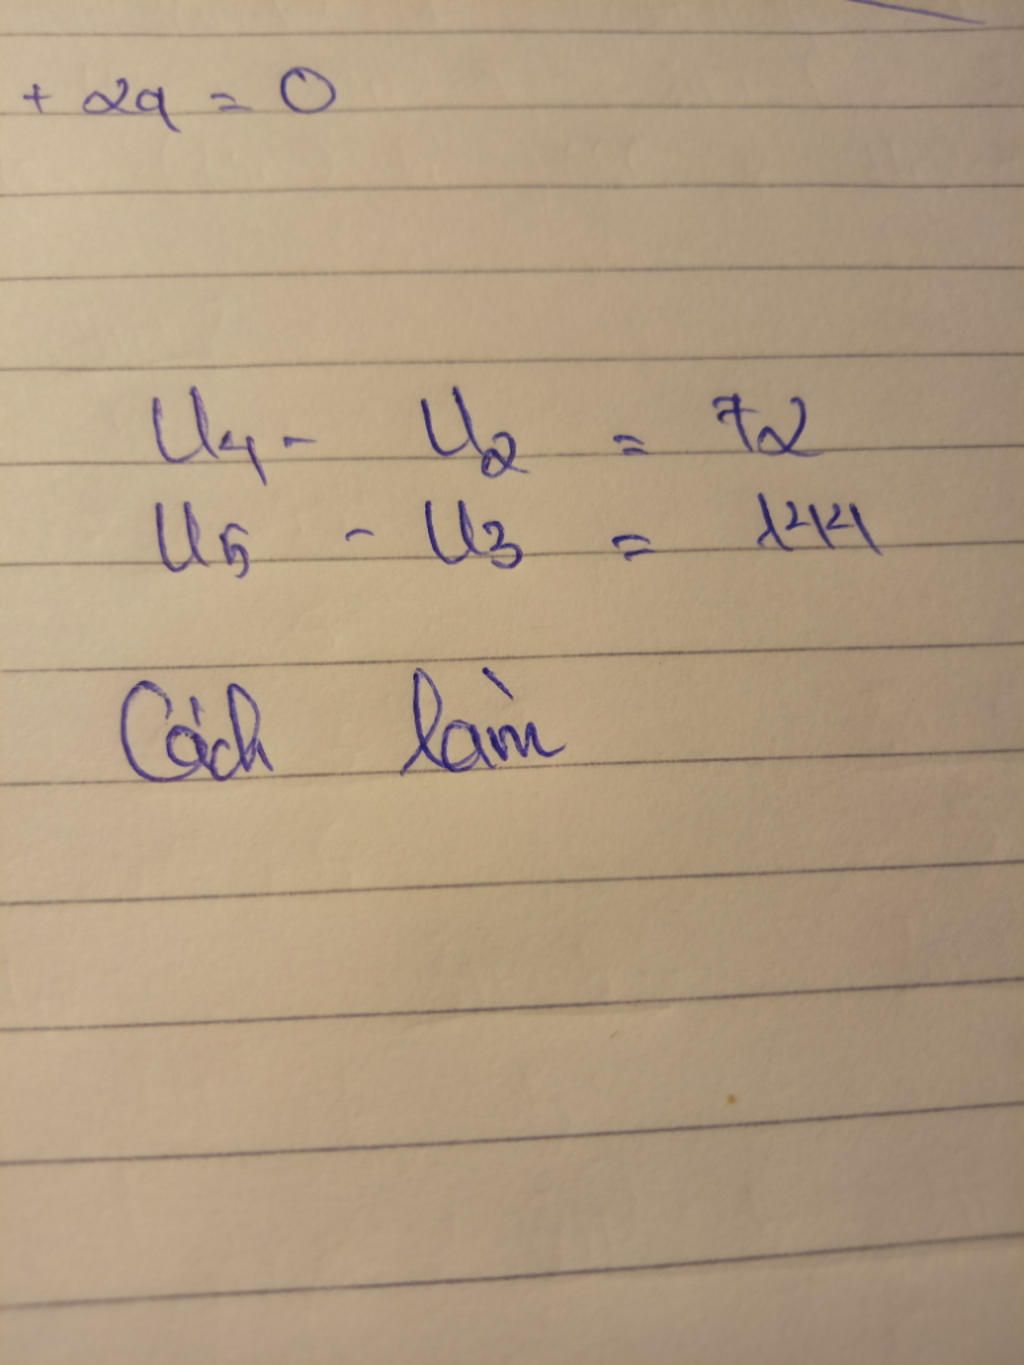 + 2q = 0
U4 - U2 = 72
U5 - U3 = 144
Cách làm